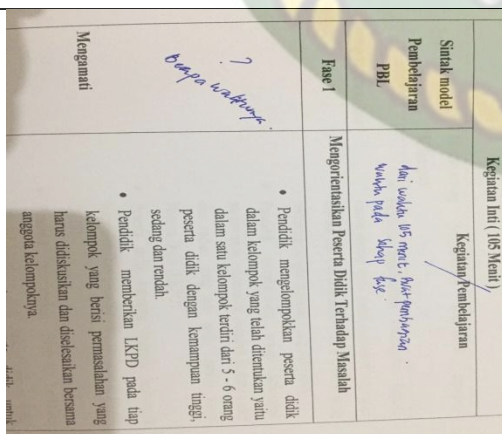 Kegiatan Inti ( 105 Menit )
Sintak model
Pembelajaran
PBL
Kegiatan Pembelajaran
dari waktu 105 menit, buat pembagian
waktu pada tahap fase
Fase 1
Mengorientasikan Peserta Didik Terhadap Masalah
?
Berapa waktunya.
Mengamati
• Pendidik mengelompokkan peserta didik
dalam kelompok yang telah ditentukan yaitu
dalam satu kelompok terdiri dari 5 - 6 orang
peserta didik dengan kemampuan tinggi,
sedang dan rendah.
• Pendidik memberikan LKPD pada tiap
kelompok yang berisi permasalahan yang
harus didiskusikan dan diselesaikan bersama
anggota kelompoknya.